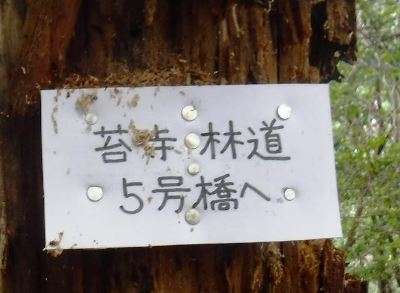 苔寺林道
5号橋へ